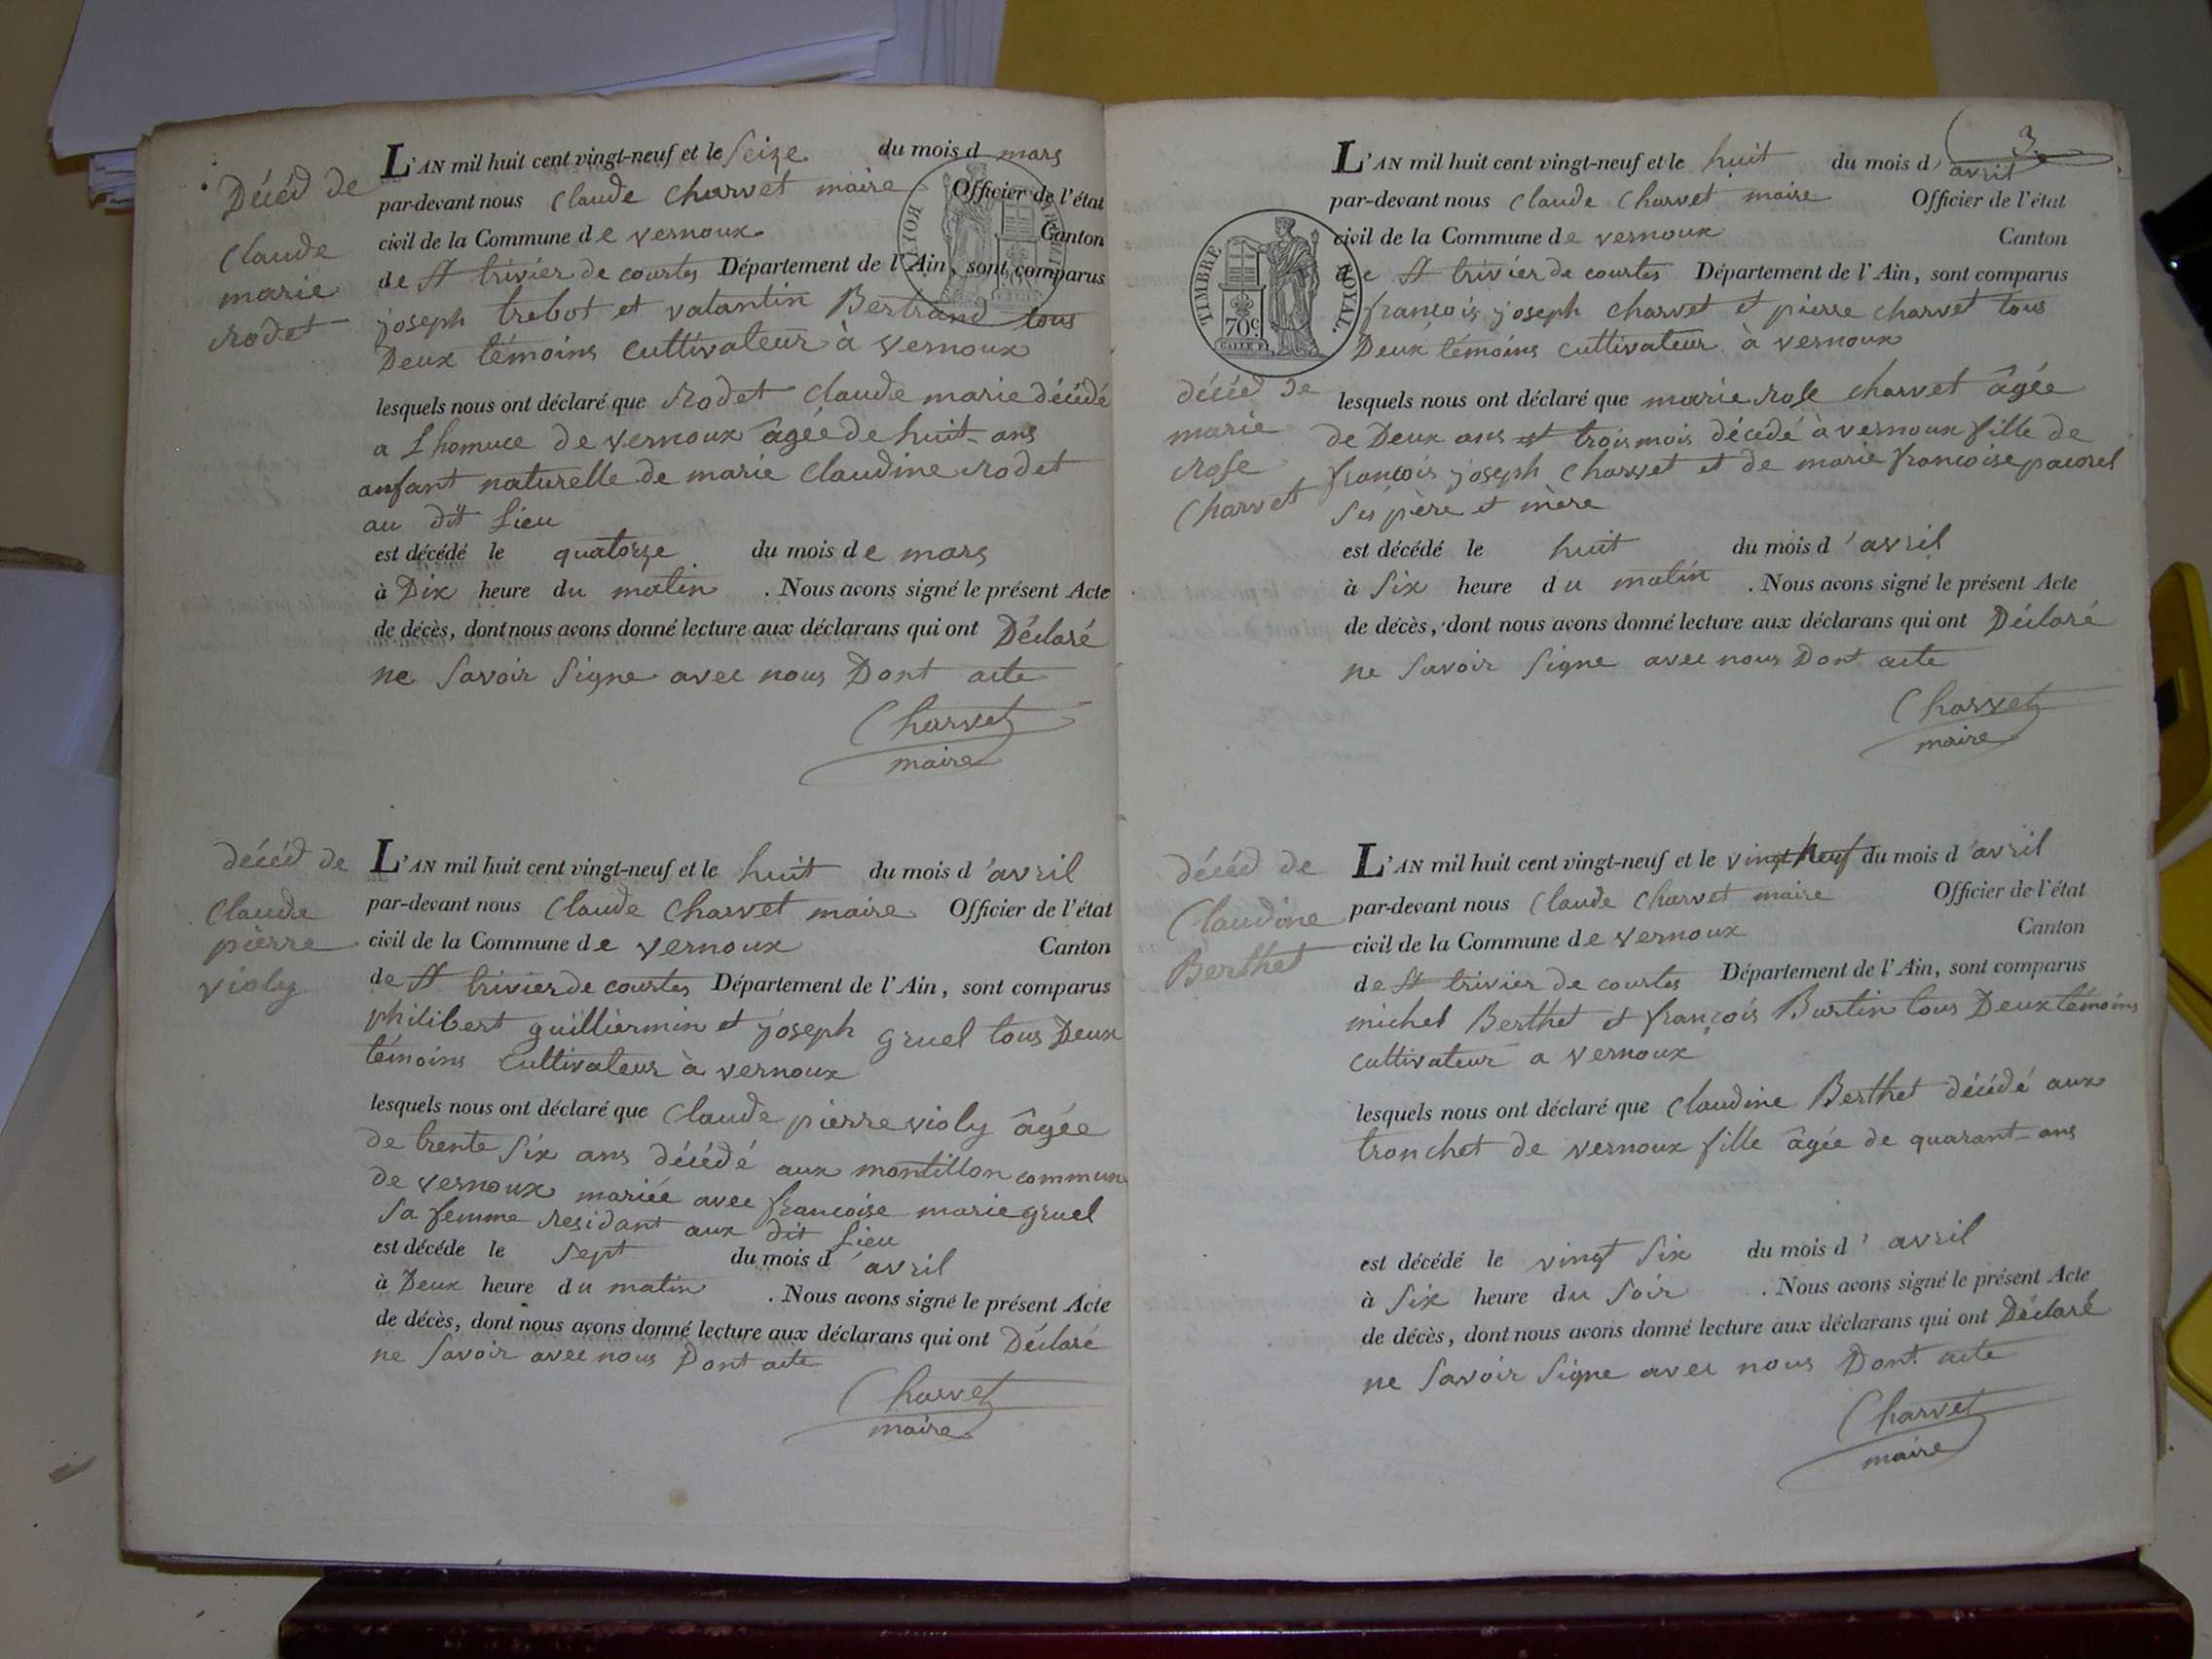 Décéd de
Claude
marie
rodet
L'AN mil huit cent vingt-neuf et le seize du mois d mars
par-devant nous Claude Charvet maire Officier de l'état
civil de la Commune de vernoux Canton
de St trivier de courtes Département de l'Ain, sont comparus
joseph trebot et valantin Bertrand tous
Deux témoins cultivateur à vernoux
lesquels nous ont déclaré que rodet Claude marie décédé
a de vernoux âgée de huit ans
anfant naturelle de marie Claudine rodet
au dit Lieu
est décédé le quatorze du mois de mars
à Dix heure du matin . Nous avons signé le présent Acte
de décès, dont nous avons donné lecture aux déclarans qui ont Déclaré
ne savoir signe avec nous Dont acte
Charvet
maire
décéd de
Claude
pierre
violy
L'AN mil huit cent vingt-neuf et le huit du mois d'avril
par-devant nous Claude Charvet maire Officier de l'état
civil de la Commune de vernoux Canton
de St trivier de courtes Département de l'Ain, sont comparus
philibert guilliermin et joseph gruel tous Deux
témoins Cultivateur à vernoux
lesquels nous ont déclaré que Claude pierre violy âgée
de trente six ans décédé aux montillon commun
de vernoux mariée avec francoise marie gruel
sa femme residant aux dit Lieu
est décéde le sept du mois d'avril
à Deux heure du matin . Nous avons signé le présent Acte
de décès, dont nous avons donné lecture aux déclarans qui ont Déclaré
ne savoir avec nous Dont acte
Charvet
maire
3
TIMBRE ROYAL.
70c
L'AN mil huit cent vingt-neuf et le huit du mois d'avril
par-devant nous Claude Charvet maire Officier de l'état
civil de la Commune de vernoux Canton
de St trivier de courtes Département de l'Ain, sont comparus
francois joseph charvet et pierre charvet tous
Deux témoins cultivateur à vernoux
décéd de
marie
rose
Charvet
lesquels nous ont déclaré que marie rose charvet âgée
de Deux ans et trois mois décedé à vernoux fille de
francois joseph Charvet et de marie francoise
ses père et mère
est décédé le huit du mois d'avril
à six heure du matin . Nous avons signé le présent Acte
de décès, dont nous avons donné lecture aux déclarans qui ont Déclaré
ne savoir signe avec nous Dont acte
Charvet
maire
décéd de
Claudine
Berthet
L'AN mil huit cent vingt-neuf et le vingt neuf du mois d'avril
par-devant nous Claude Charvet maire Officier de l'état
civil de la Commune de vernoux Canton
de St trivier de courtes Département de l'Ain, sont comparus
michel Berthet et françois Burtin tous Deux témoins
cultivateur a vernoux
lesquels nous ont déclaré que Claudine Berthet décédé aux
tronchet de vernoux fille âgée de quarant ans
est décédé le vingt six du mois d'avril
à six heure du soir . Nous avons signé le présent Acte
de décès, dont nous avons donné lecture aux déclarans qui ont Déclaré
ne savoir signe avec nous Dont acte
Charvet
maire